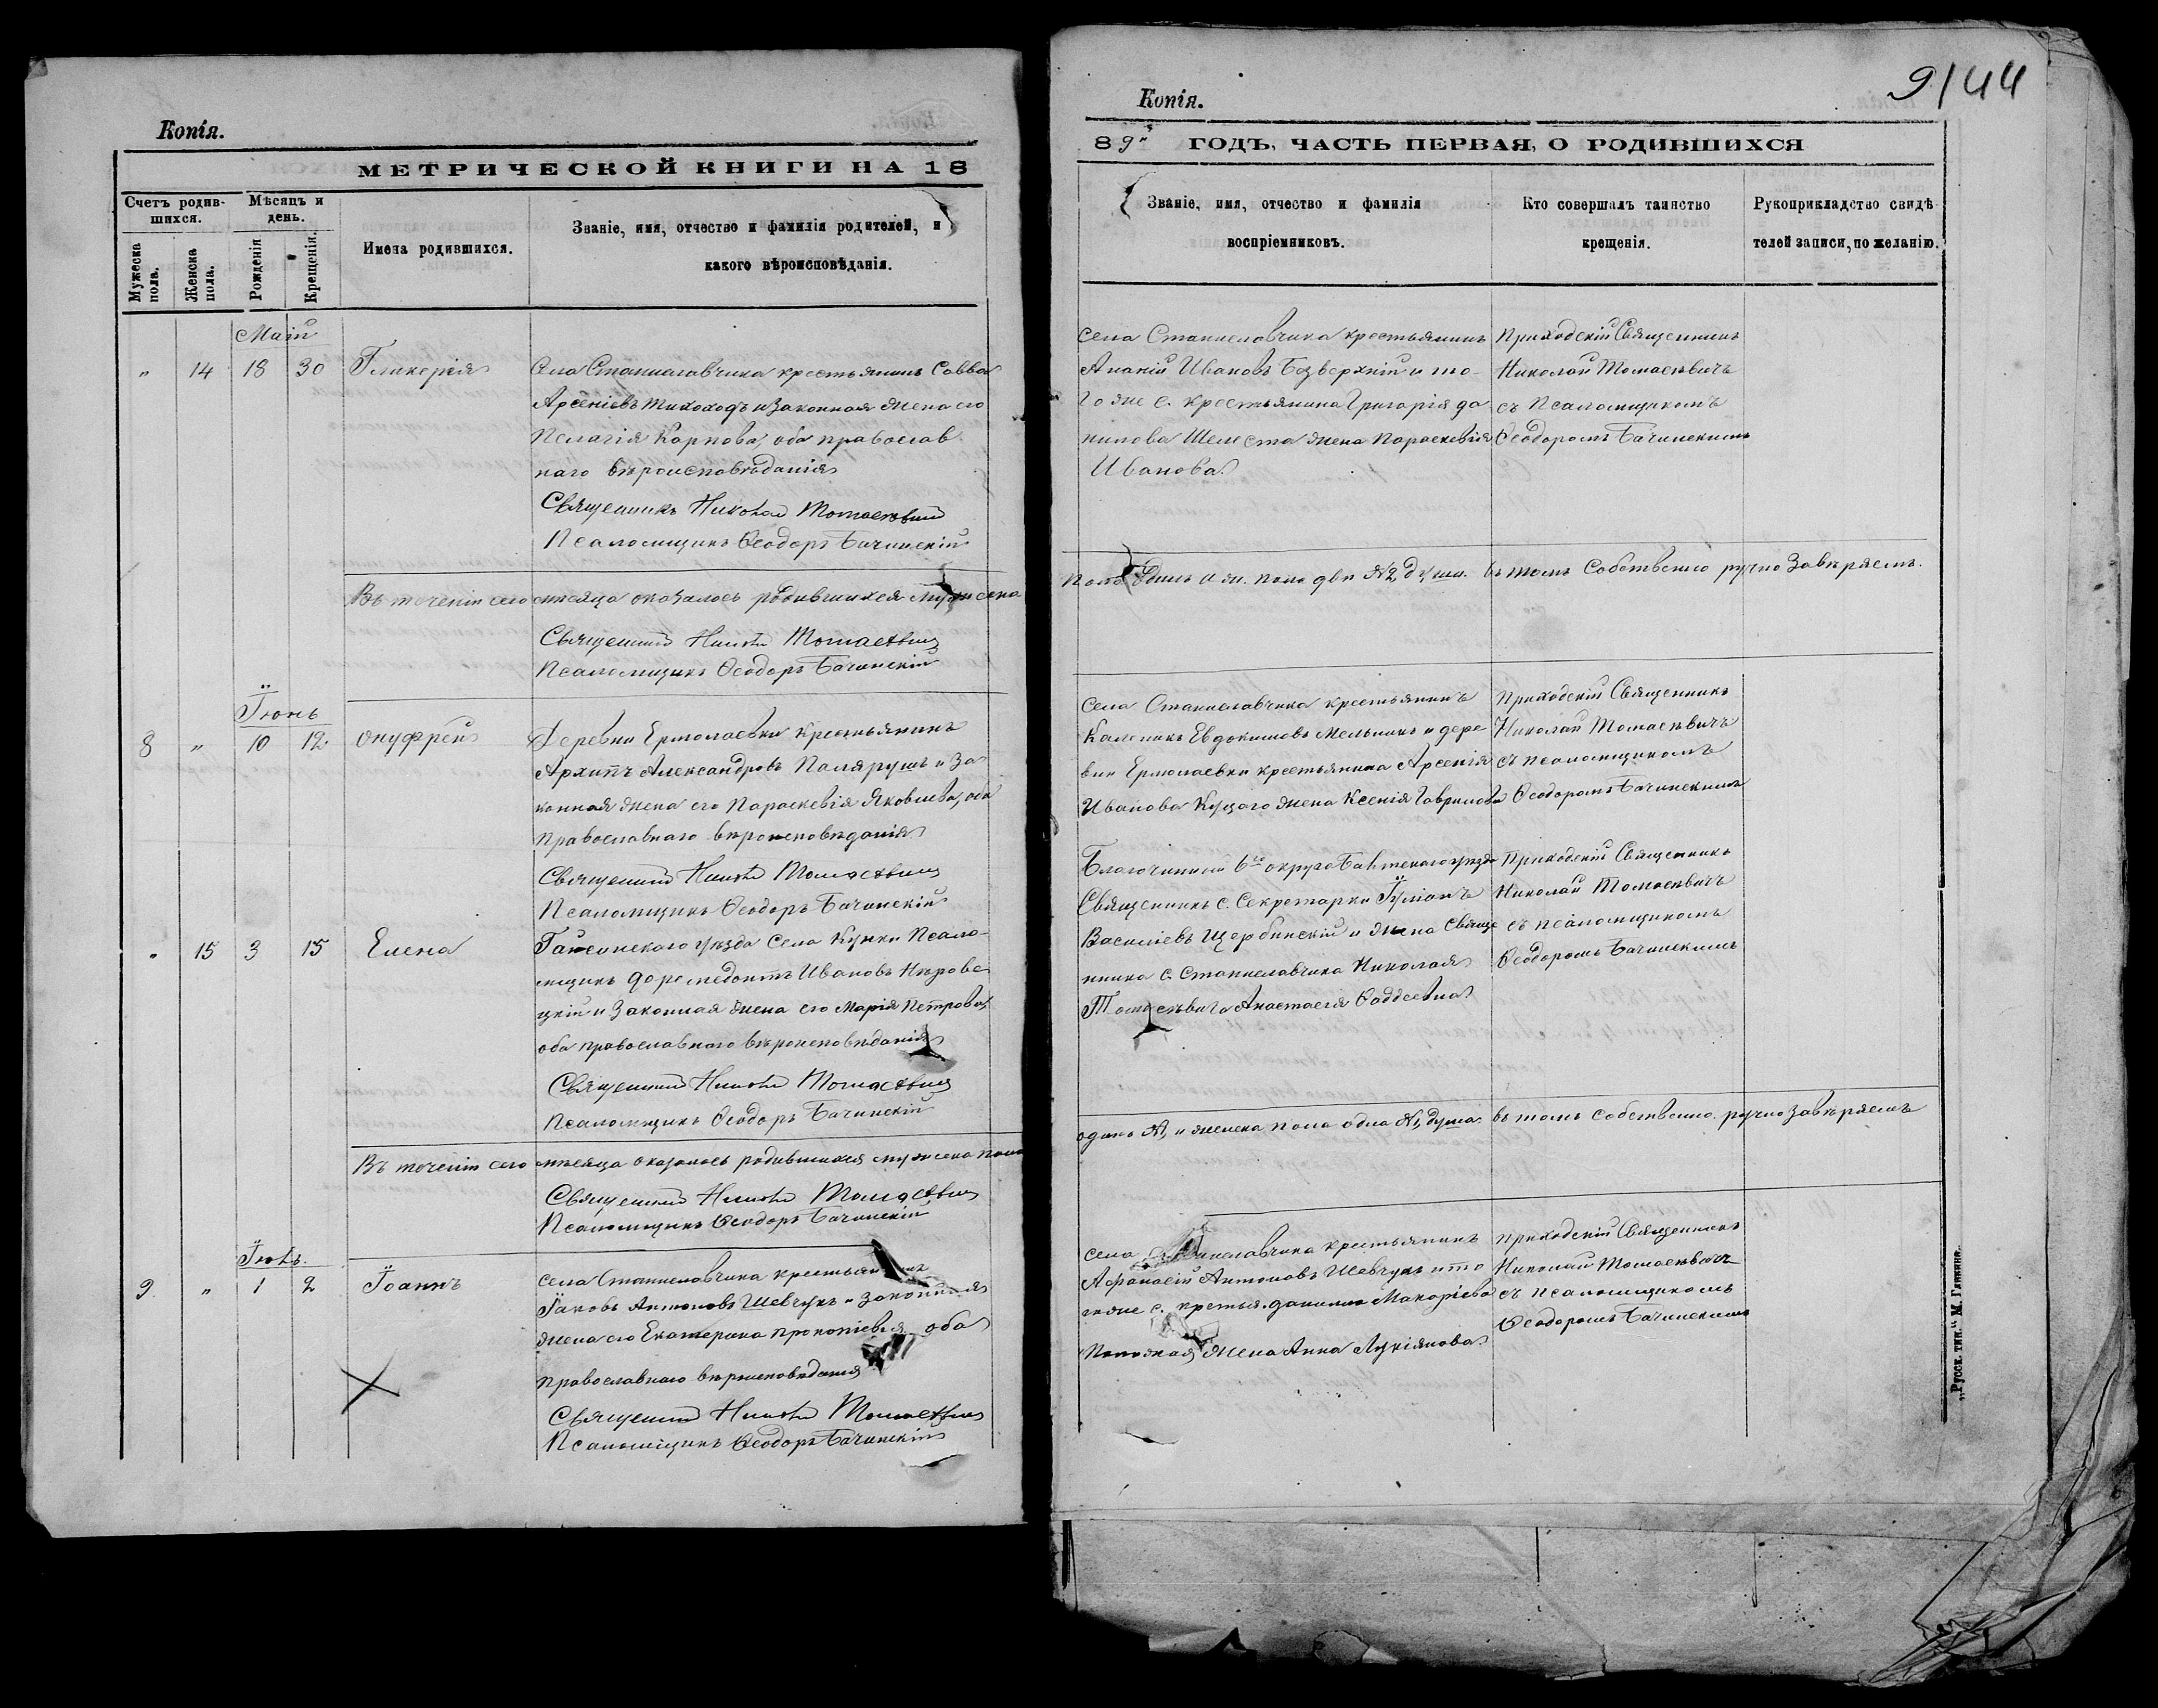 Копія.
МЕТРИЧЕСКОЙ КНИГИ НА 18
Счетъ родив-
шихся.
Мѣсяцъ и
день.
Мужеска
пола.
Женска
пола.
Рожденія
Крещенія.
Имена родившихся.
Званіе, имя, отчество и фамилія родителей, и
какого вѣроисповѣданія.
Май
" 14 18 30 Гликерія
Села Станиславчика крестьянинъ Савва
Арсеніевъ Тихоходъ и законная жена его
Пелагія Карпова, оба православ
наго вѣроисповѣданія
Священникъ Николай Томасевич
Псаломщикъ Ѳеодоръ Бачинскій
Въ теченіи сего мѣсяца оказалось родившихся мужеска
Священникъ Николай Томасевич
Псаломщикъ Ѳеодоръ Бачинскій
Іюнь
8 " 10 12 Онуфрей
Деревни Ермолаевки крестьянинъ
Архипъ Александровъ Палярушъ и за
конная жена его Параскевія Яковлева, оба
православнаго вѣроисповѣданія
Священникъ Николай Томасевич
Псаломщикъ Ѳеодоръ Бачинскій
" 15 3 15 Елена
Гайсинскаго уѣзда села Кунки Псало-
мщикъ Доримедонтъ Ивановъ
и законная жена его Марія Петрова,
оба православнаго вѣроисповѣданія
Священникъ Николай Томасевич
Псаломщикъ Ѳеодоръ Бачинскій
Въ теченіи сего мѣсяца оказалось родившихся мужеска пола
Священникъ Николай Томасевич
Псаломщикъ Ѳеодоръ Бачинскій
Іюль.
9 " 1 2 Іоаннъ
села Станиславчика крестьянинъ
Іаковъ Антоновъ Шевчукъ и законная
жена его Екатерина Прокопіевна оба
православнаго вѣроисповѣданія
Священникъ Николай Томасевич
Псаломщикъ Ѳеодоръ Бачинскій
9/44
Копія.
89 ГОДЪ, ЧАСТЬ ПЕРВАЯ, О РОДИВШИХСЯ
Званіе, имя, отчество и фамилія
воспріемниковъ.
Кто совершалъ таинство
крещенія.
Рукоприкладство свидѣ
телей записи, по желанію.
села Станиславчика крестьянинъ
Ананій Ивановъ Безверхній и то-
го же с. крестьянина Григорія Да
нилова Шелеста жена Параскевія
Иванова
Приходскій Священникъ
Николай Томасевичъ
съ Псаломщикомъ
Ѳеодоромъ Бачинскимъ
пола и ж. пола двѣ №2 души. въ томъ собственно ручно завѣряемъ.
села Станиславчика крестьянинъ
Калиникъ Евдокимовъ Мельникъ и дере
вни Ермолаевки крестьянина Арсенія
Иванова Куцаго жена Ксенія Гаврилова
Приходскій Священникъ
Николай Томасевичъ
съ псаломщикомъ
Ѳеодоромъ Бачинскимъ
Благочинный 6го округа Балтскаго уѣзда
Священникъ с. Секретарки Іуліанъ
Василіевъ Щербинскій и жена Свяще
нника с. Станиславчика Николая
Томасевича Анастасія Ѳаддеевна
Приходскій Священникъ
Николай Томасевичъ
съ псаломщикомъ
Ѳеодоромъ Бачинскимъ
одинъ №1, и женска пола одна №1, душа. въ томъ собственно ручно завѣряемъ
села Станиславчика крестьянинъ
Афанасій Антоновъ Шевчукъ и то
гоже с. крестья. Даниила Макаріева
жена Анна Лукіянова
Приходскій Священникъ
Николай Томасевичъ
съ псаломщикомъ
Ѳеодоромъ Бачинскимъ
„Русск. тип.“ М. Гликмана.